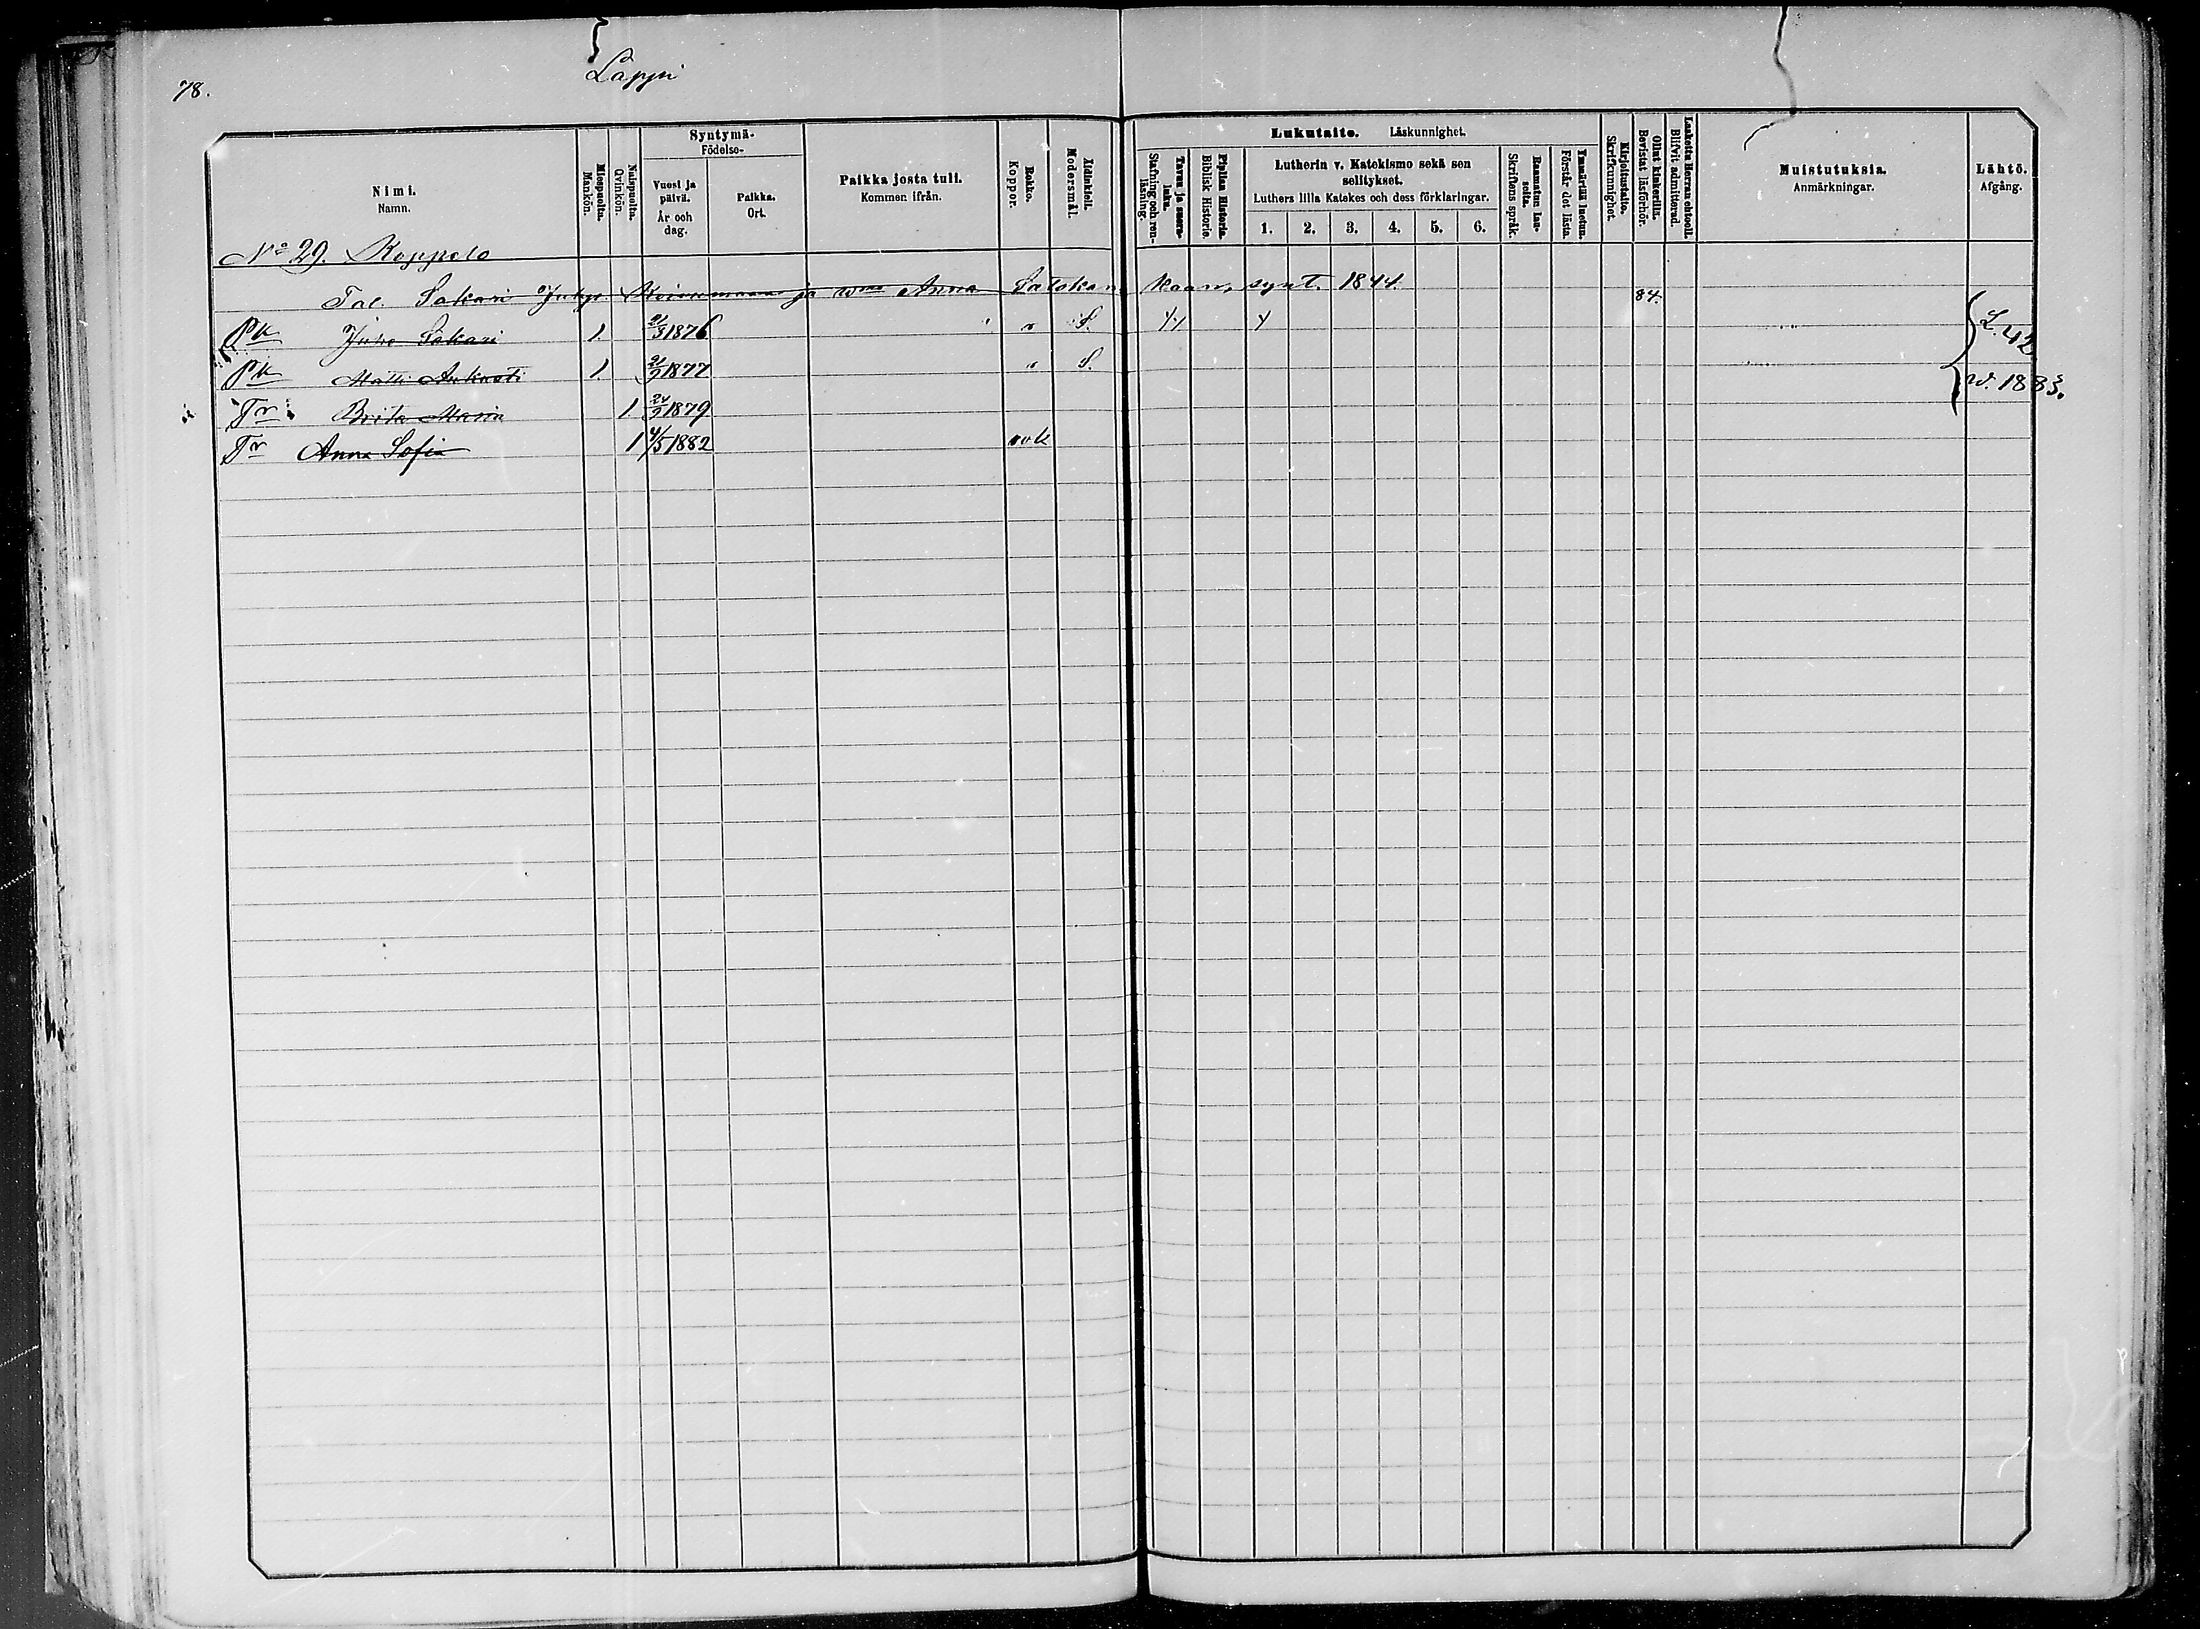 78.
Lappi
Nimi.
Namn.
Miespuolta.
Mankön.
Naispuolta.
Qvinkön.
Syntymä-
Födelse-
Vuosi ja päivä.
År och dag.
Paikka.
Ort.
Paikka josta tuli.
Kommen ifrån.
Rokko.
Koppor.
Äidinkieli.
Modersmål.
Lukutaito. Läskunnighet.
Tavuu ja suora-luku.
Stafning och ren-läsning.
Piplian Historia.
Biblisk Historie.
Lutherin v. Katekismo sekä sen selitykset.
Luthers lilla Katekes och dess förklaringar.
1. 2. 3. 4. 5. 6.
Raamatun lau-seita.
Skriftens språk.
Ymmärtää luetun.
Förstår det lästa.
Kirjoitustaito.
Skrifkunnighet.
Ollut kinkerillä.
Bevistat läsförhör.
Laskettu Herran ehtooll.
Blifvit admitterad.
Muistutuksia.
Anmärkningar.
Lähtö.
Afgång.
No 29. Koppelo
Tal. Sakari Juhp. ja wmo Anna Satokan kaan, synt. 1844. 84.
Pk Juho Sakari 1. 21/3 1876 r S. 4
Pk Matti Aukusti 1. 21/9 1877 S.
Tr Brita Maria 1 24/9 1879
Tr Anna Sofia 1 4/5 1882 rok
L. 42
w. 1883.